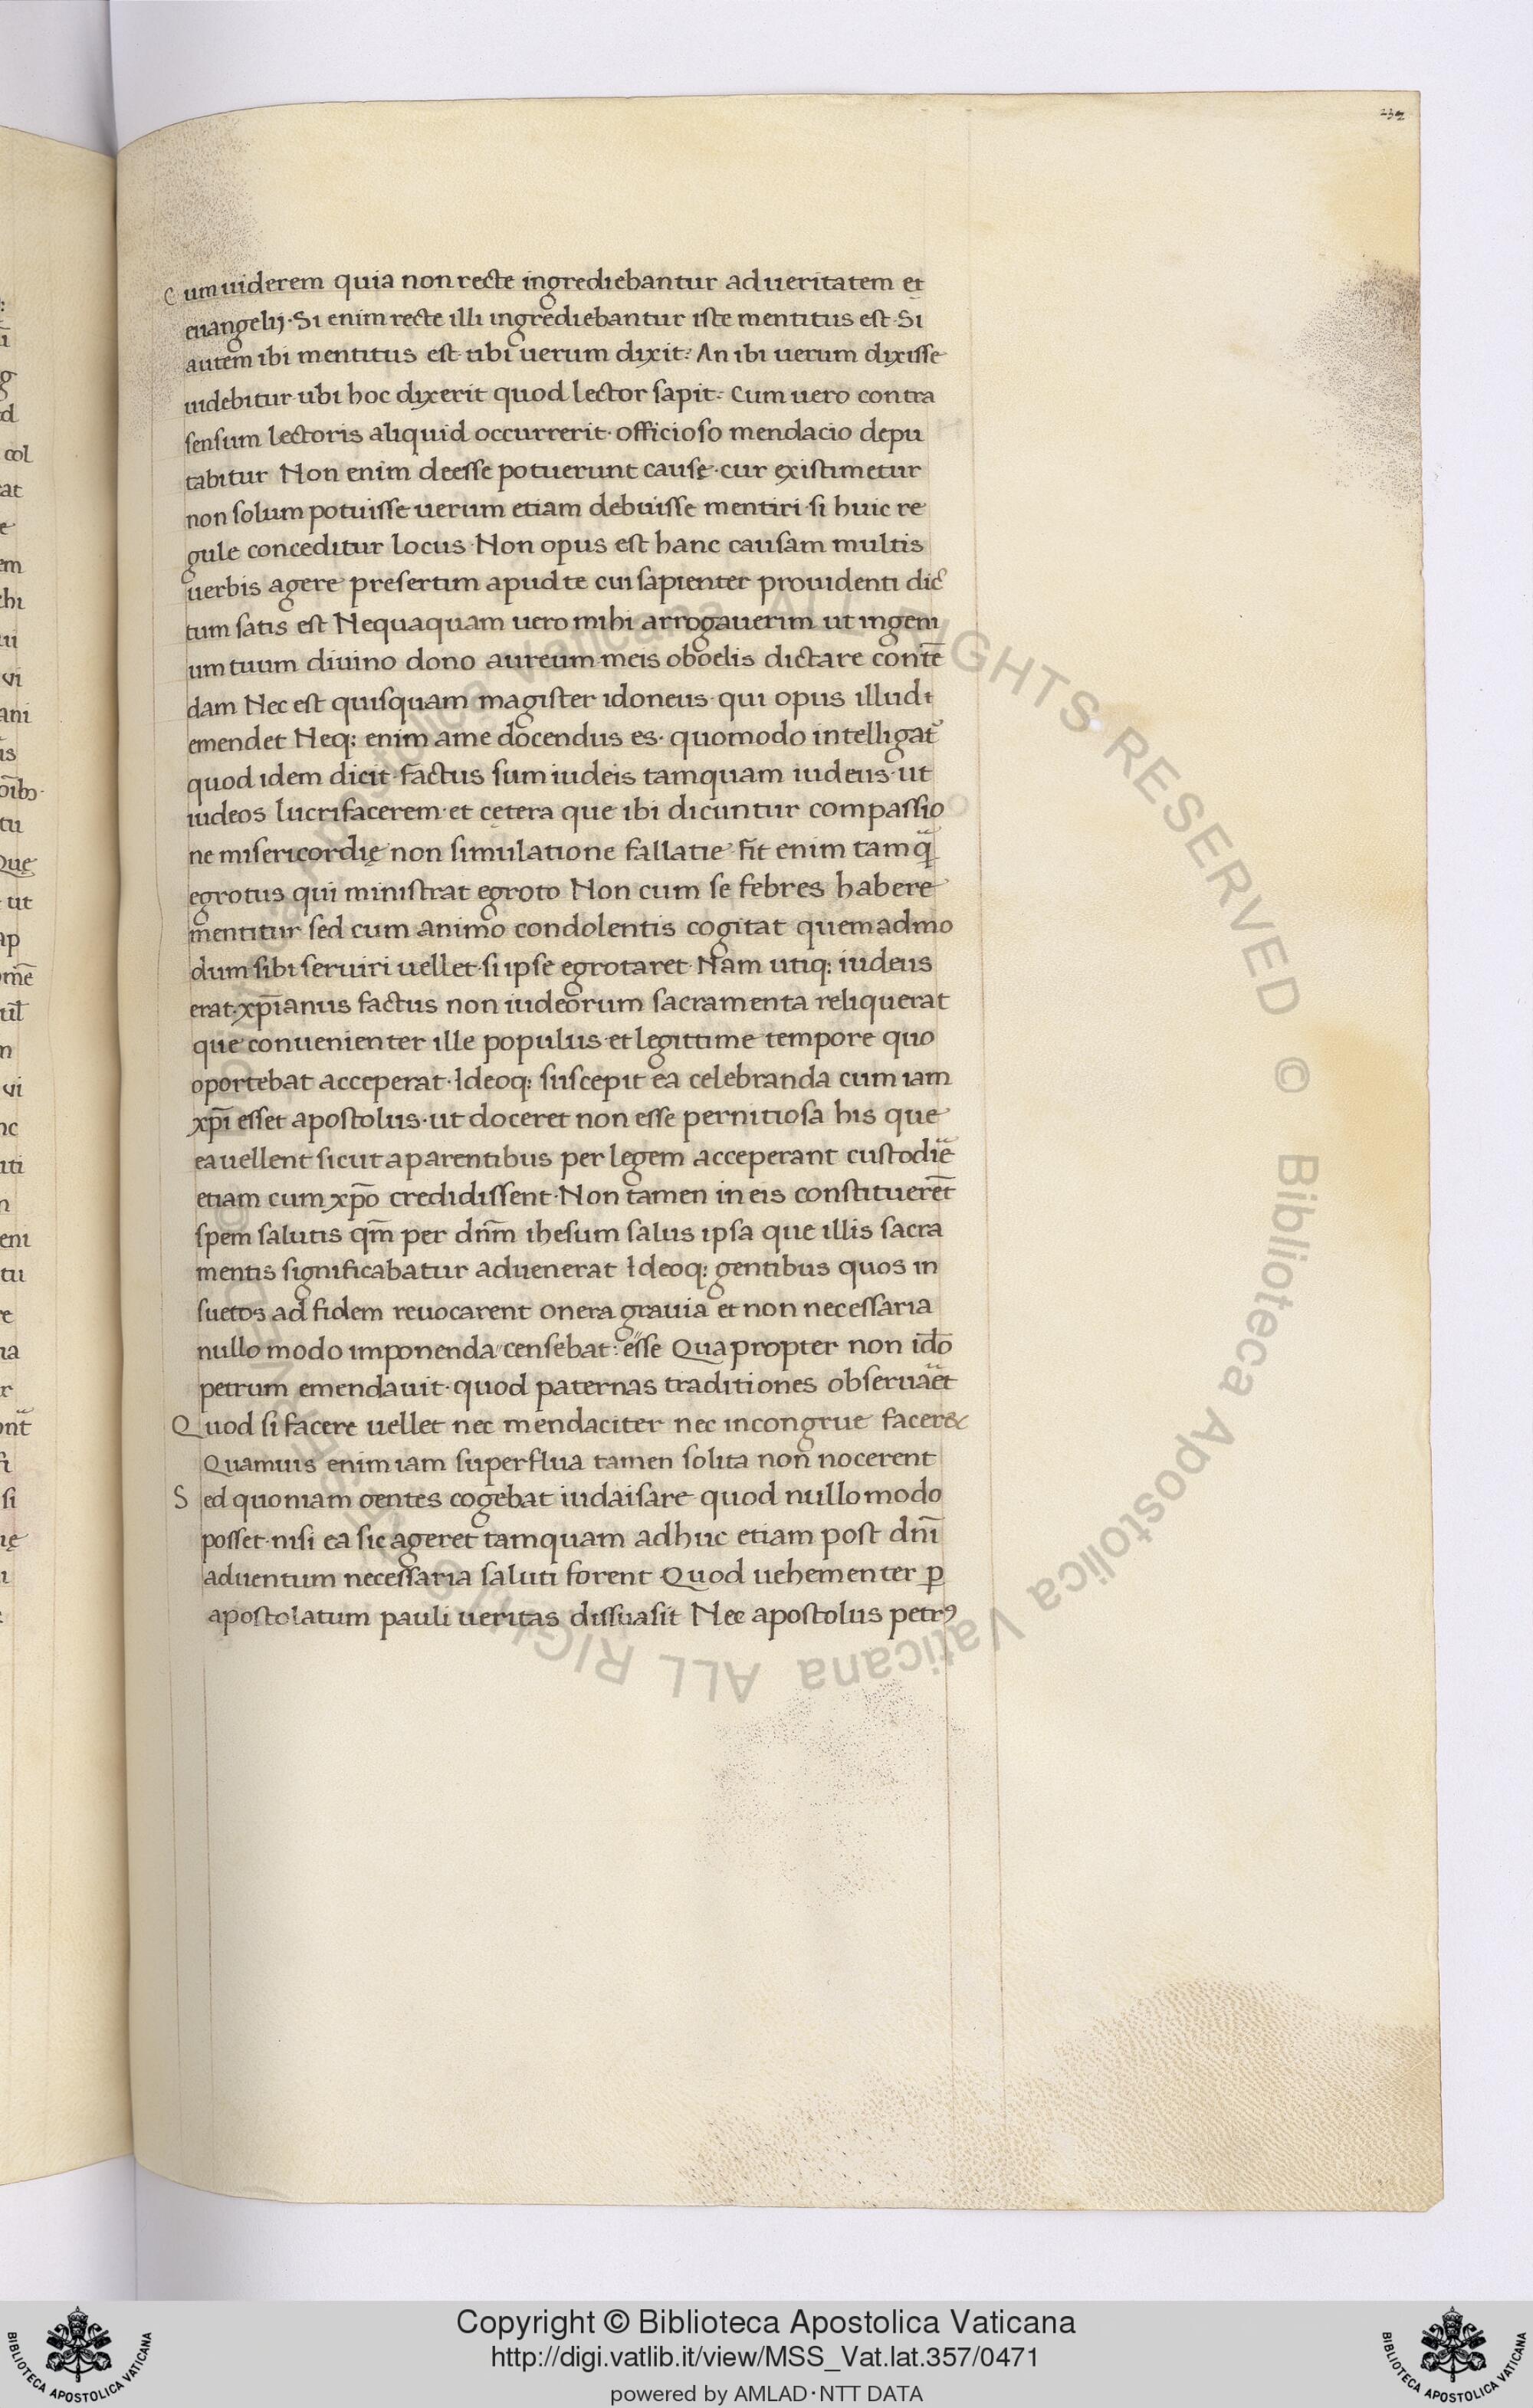 232
Cum uiderem quia non recte ingrediebantur ad ueritatem et
euangelij · Si enim recte illi ingrediebantur iste mentitus est · Si
autem ibi mentitus est · ubi uerum dixit? An ibi uerum dixisse
uidebitur ubi hoc dixerit quod lector sapit · Cum uero contra
sensum lectoris aliquid occurrerit · officioso mendacio depu
tabitur Non enim deesse potuerunt causę · cur existimetur
non solum potuisse uerum etiam debuisse mentiri · si huic re
gule conceditur locus · Non opus est hanc causam multis
uerbis agere presertim apud te cui sapienter prouidenti dic
tum satis est Nequaquam uero mihi arrogauerim ut ingeni
um tuum diuino dono aureum meis oboelis dictare contē
dam Nec est quisquam magister idoneus · qui opus illud i
emendet Neq; enim a me docendus es · quomodo intelligat᷑
quod idem dicit · factus sum iudeis tamquam iudeus · ut
iudeos lucrifacerem · et cętera que ibi dicuntur compassio
ne misericordię non simulatione fallatie · fit enim tamq̈
egrotus qui ministrat egroto Non cum se febres habere
mentitur sed cum animo condolentis cogitat quemadmo
dum sibi seruiri uellet · si ipse egrotaret · Nam utiq; iudeus
erat · xp̄ianus factus non iudeorum sacramenta reliquerat
que conuenienter ille populus · et legittime tempore quo
oportebat acceperat · Ideoq; suscepit ea celebranda cum iam
xp̄i esset apostolus · ut doceret non esse pernitiosa his que
ea uellent sicut a parentibus per legem acceperant custodie
etiam cum xp̄o credidissent · Non tamen in eis constituerēt
spem salutis qm̄ per dn̄m ihesum salus ipsa que illis sacra
mentis significabatur aduenerat Ideoq; gentibus quos in
suetos ad fidem reuocarent onera grauia et non necessaria
nullo modo imponenda censebat : esse Quapropter non id̄o
petrum emendauit · quod paternas traditiones obseruaet
Quod si facere uellet nec mendaciter nec incongrue facer&
Quamuis enim iam superflua tamen solita non nocerent
Sed quoniam gentes cogebat iudaisare quod nullo modo
posset · nisi ea sic ageret tamquam adhuc etiam post dn̄i
aduentum necessaria saluti forent Quod uehementer ꝑ
apostolatum pauli ueritas dissuasit Nec apostolus petrꝰ
© Biblioteca Apostolica Vaticana ALL RIGHTS RESERVED
Copyright © Biblioteca Apostolica Vaticana
http://digi.vatlib.it/view/MSS_Vat.lat.357/0471
powered by AMLAD · NTT DATA
BIBLIOTECA APOSTOLICA VATICANA
BIBLIOTECA APOSTOLICA VATICANA